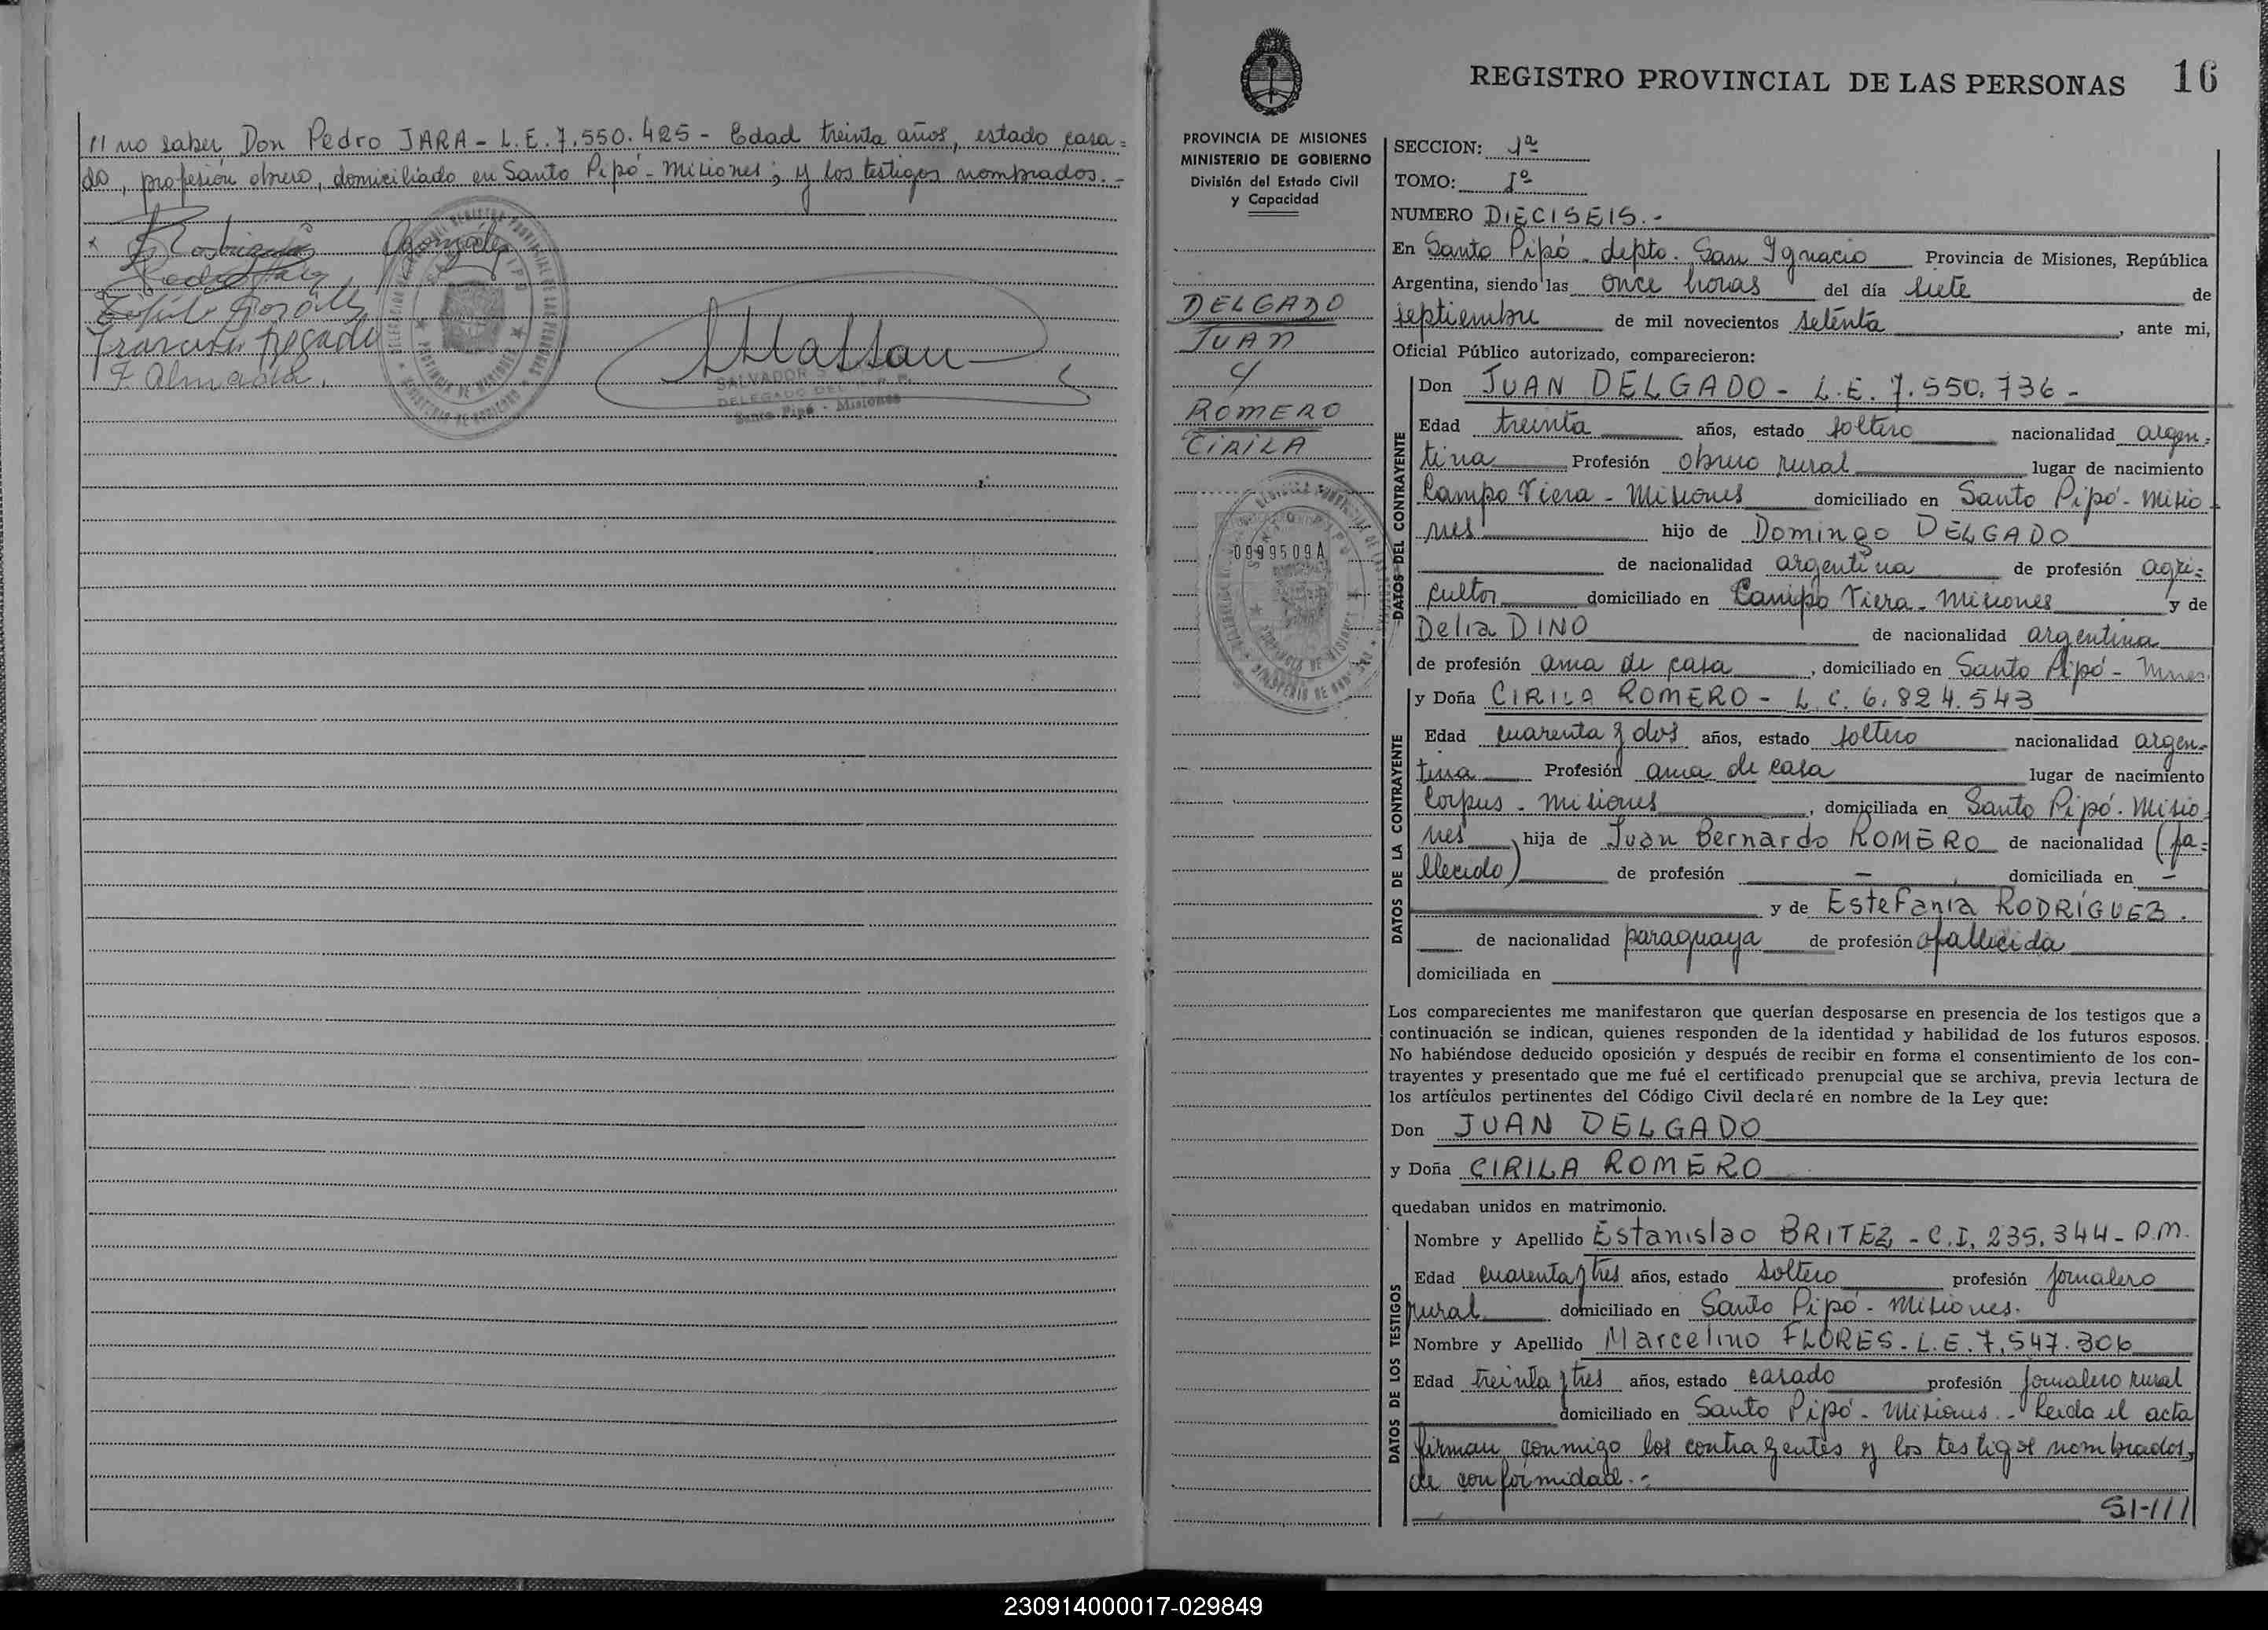 // no saber Don Pedro JARA - L.E. 7.550.425 - Edad treinta años, estado casa=
do, profesión obrero, domiciliado en Santo Pipó - Misiones; y los testigos nombrados.-
González
SALVADOR
DELEGADO DEL R.P.P.
Santo Pipó - Misiones
REGISTRO PROVINCIAL DE LAS PERSONAS 16
PROVINCIA DE MISIONES
MINISTERIO DE GOBIERNO
División del Estado Civil
y Capacidad
DELGADO
JUAN
y
ROMERO
CIRILA
0999509A
SECCION: 1ª
TOMO: 1º
NUMERO DIECISEIS.-
En Santo Pipó - depto. San Ignacio Provincia de Misiones, República
Argentina, siendo las once horas del día siete de
septiembre de mil novecientos setenta, ante mi,
Oficial Público autorizado, comparecieron:
DATOS DEL CONTRAYENTE
Don JUAN DELGADO - L.E. 7.550.736 -
Edad treinta años, estado soltero nacionalidad argen=
tina Profesión obrero rural lugar de nacimiento
Campo Viera - Misiones domiciliado en Santo Pipó - Misio
nes hijo de Domingo DELGADO
de nacionalidad argentina de profesión agri=
cultor domiciliado en Campo Viera - Misiones y de
Delia DINO de nacionalidad argentina
de profesión ama de casa, domiciliado en Santo Pipó - Mnes.
DATOS DE LA CONTRAYENTE
y Doña CIRILA ROMERO - L.C. 6.824.543
Edad cuarenta y dos años, estado soltero nacionalidad argen-
tina Profesión ama de casa lugar de nacimiento
Corpus - Misiones, domiciliada en Santo Pipó - Misio
nes hija de Juan Bernardo ROMERO de nacionalidad (fa=
llecido) de profesión - domiciliada en -
y de Estefania RODRÍGUEZ.
de nacionalidad paraguaya de profesión fallecida
domiciliada en
Los comparecientes me manifestaron que querían desposarse en presencia de los testigos que a
continuación se indican, quienes responden de la identidad y habilidad de los futuros esposos.
No habiéndose deducido oposición y después de recibir en forma el consentimiento de los con-
trayentes y presentado que me fué el certificado prenupcial que se archiva, previa lectura de
los artículos pertinentes del Código Civil declaré en nombre de la Ley que:
Don JUAN DELGADO
y Doña CIRILA ROMERO
quedaban unidos en matrimonio.
DATOS DE LOS TESTIGOS
Nombre y Apellido Estanislao BRITEZ - C.I. 235.344 - P.M.
Edad cuarenta y tres años, estado soltero profesión jornalero
rural domiciliado en Santo Pipó - Misiones.
Nombre y Apellido Marcelino FLORES - L.E. 7.547.306
Edad treinta y tres años, estado casado profesión jornalero rural
domiciliado en Santo Pipó - Misiones.- Leida el acta
firman conmigo los contrayentes y los testigos nombrados,
de conformidad.-
230914000017-029849